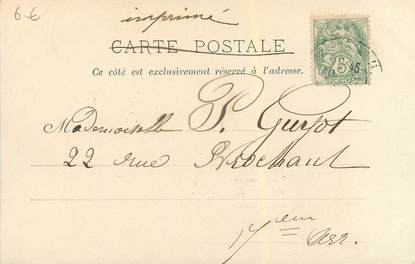 6€
imprimé
CARTE POSTALE
Ce côté est exclusivement réservé à l'adresse.
5
Mademoiselle P. Guyot
22 rue Brochant
17 eme Arr.